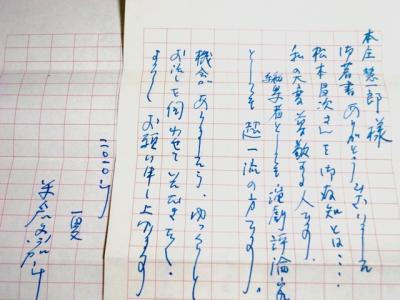 本庄慧一郎様
御著書ありがとうございました
松本昌次さんを御存知とは・・・・
私の大変尊敬する人です。
編集者としても演劇評論家
としても超一流の方です。
機会がありましたら、ゆっくりと
お話を伺わせていただきたく・
よろしくお願い申し上げます
一夏